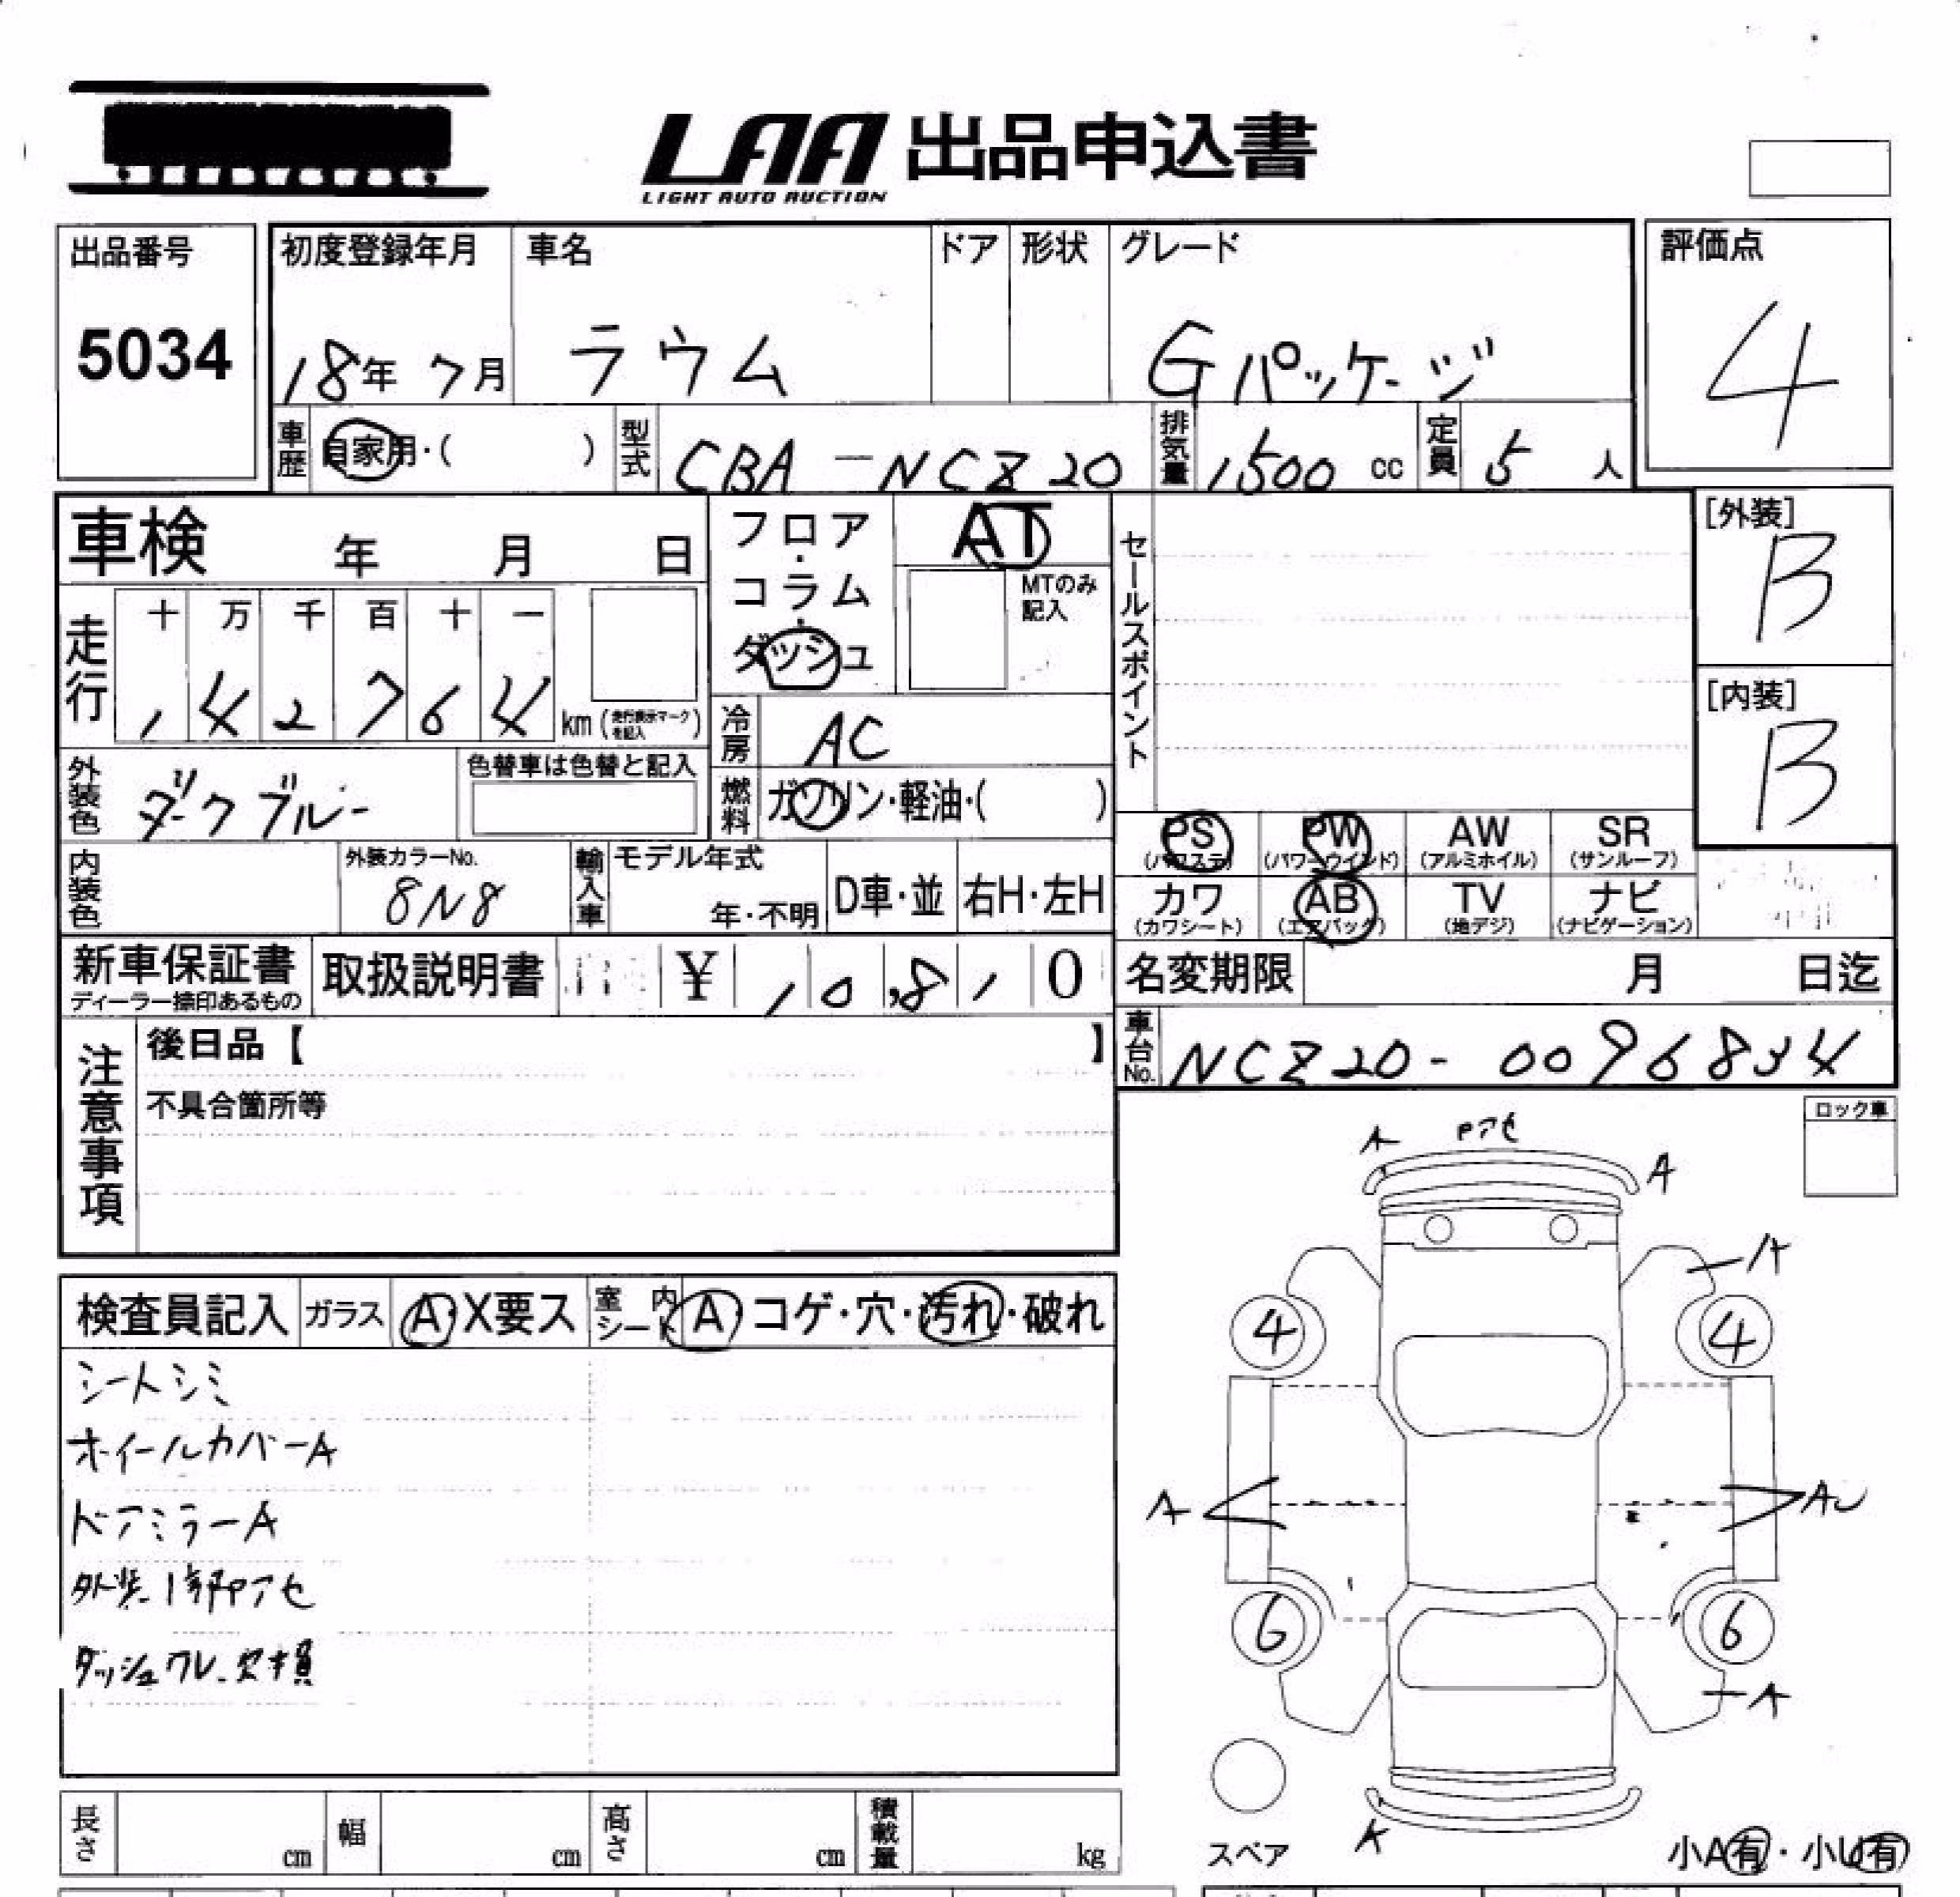 LAA 出品申込書
LIGHT AUTO AUCTION
出品番号
5034
初度登録年月 車名 ドア 形状 グレード
18年 7月 ラウム Gパッケージ
評価点
4
車歴 自家用・( ) 型式 CBA-NCZ20 排気量 1500 cc 定員 5 人
車検 年 月 日
フロア・コラム・ダッシュ
AT
MTのみ記入
セールスポイント
[外装]
B
[内装]
B
走行 十 万 千 百 十 一
142764 km (走行表示マークを記入)
冷房 AC
外装色 ダークブルー 色替車は色替と記入
燃料 ガソリン・軽油・( )
PS (パワステ) PW (パワーウインド) AW (アルミホイル) SR (サンルーフ)
カワ (カワシート) AB (エアバッグ) TV (地デジ) ナビ (ナビゲーション)
内装色 外装カラーNo. 8N8 輸入車 モデル年式 年・不明 D車・並 右H・左H
新車保証書 ディーラー捺印あるもの 取扱説明書 ¥ 10,810
名変期限 月 日迄
車台No. NCZ20-0096834
注意事項
後日品【 】
不具合箇所等
ロック車
A Pアセ A
A
4 4
A AU
6 6
A
A
検査員記入 ガラス A・X要ス 室内シート A・コゲ・穴・汚れ・破れ
シートシミ
ホイールカバーA
ドアミラーA
外装1部Pアセ
ダッシュワレ.欠損
スペア
小A有・小U有
長さ cm 幅 cm 高さ cm 積載量 kg